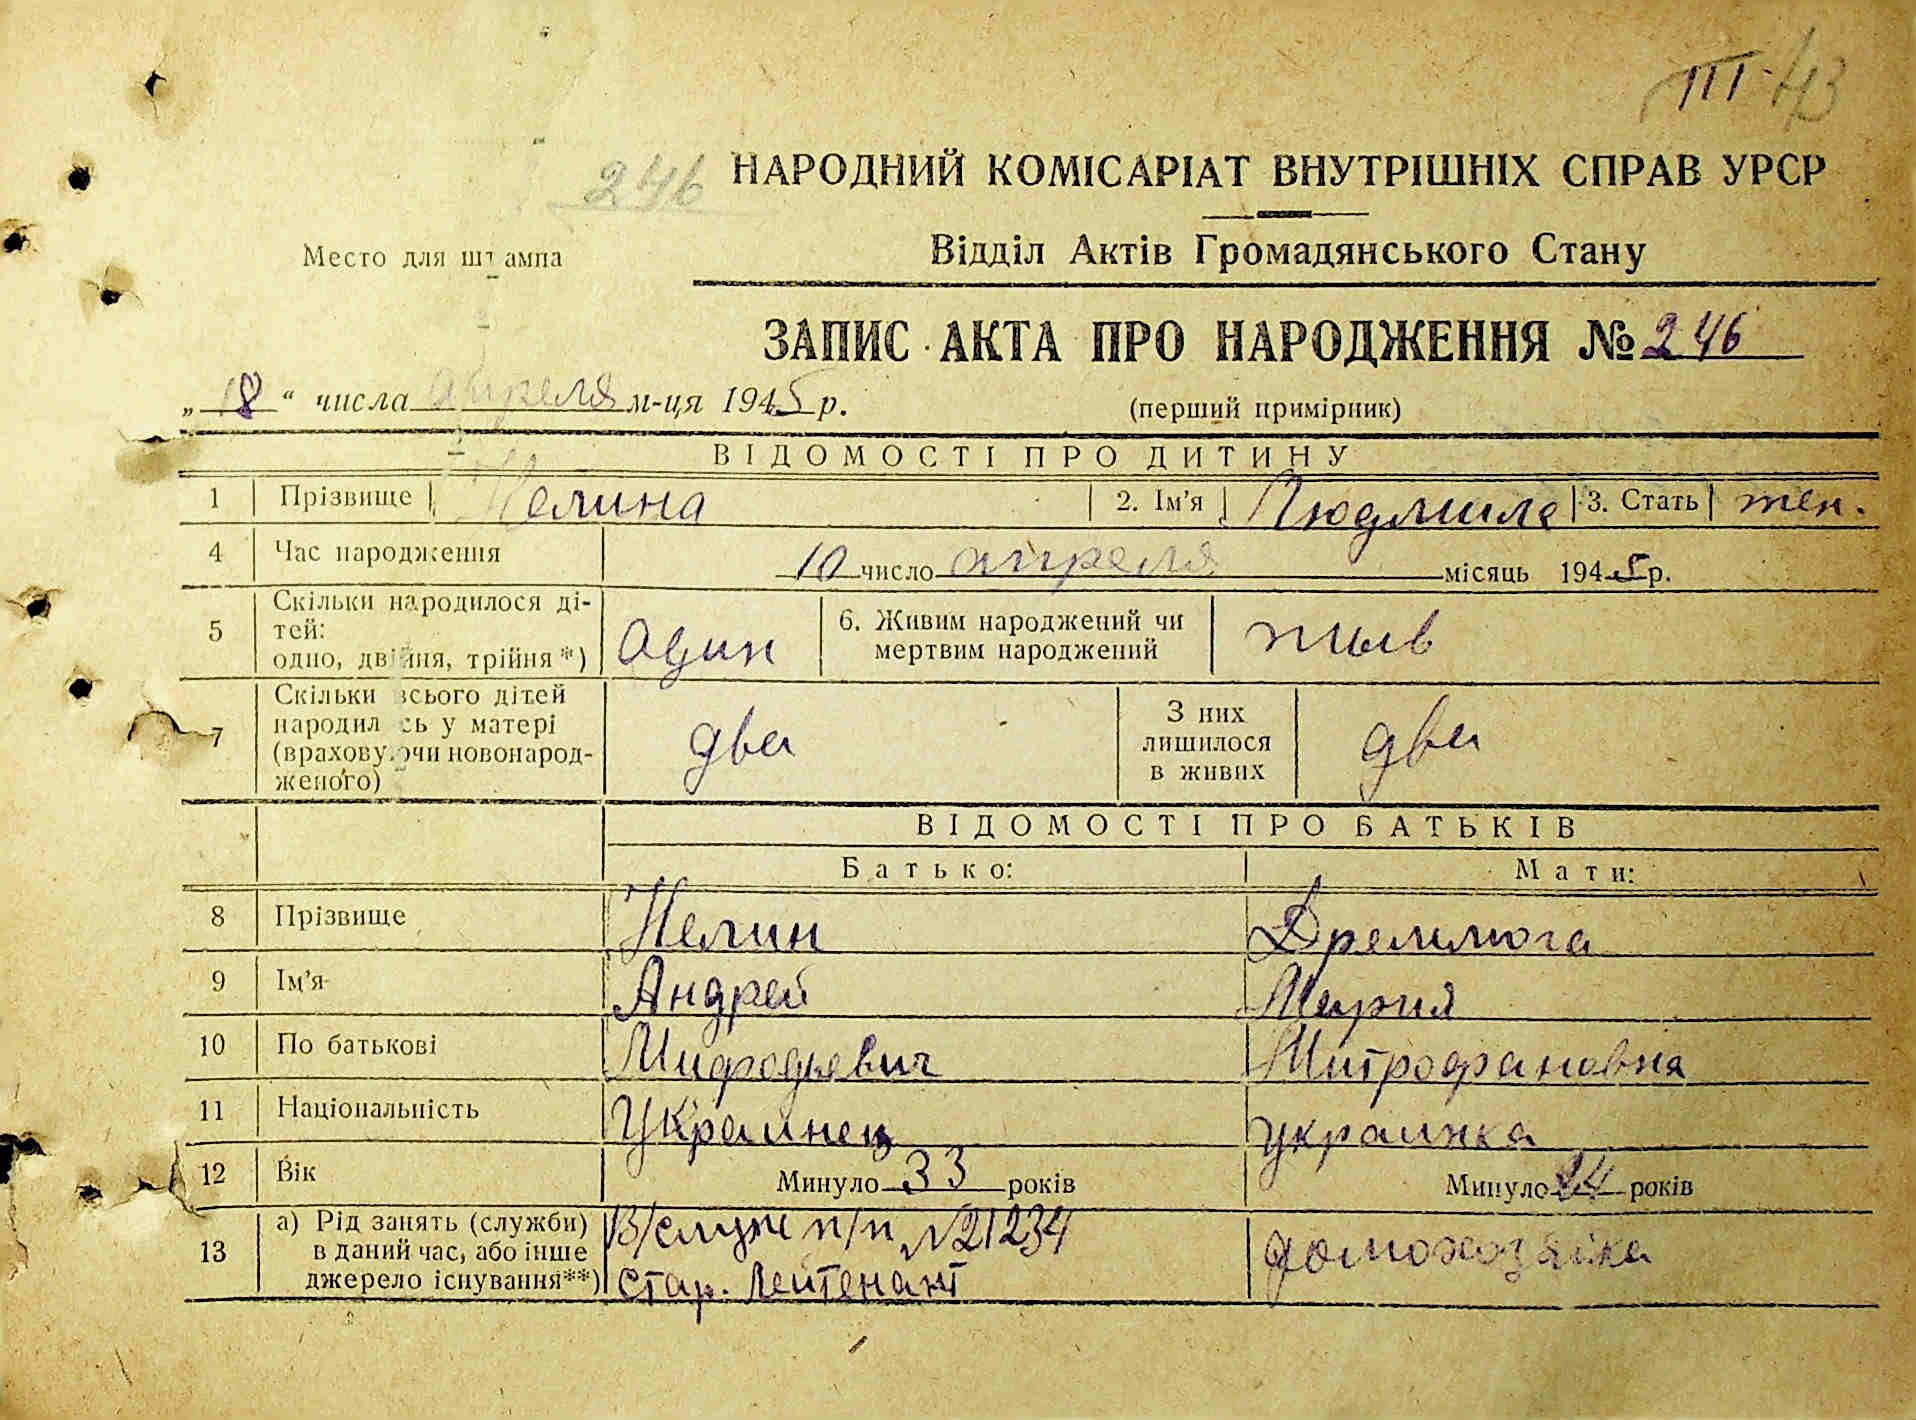 III-43
246
НАРОДНИЙ КОМІСАРІАТ ВНУТРІШНІХ СПРАВ УРСР
Место для штампа
Відділ Актів Громадянського Стану
ЗАПИС АКТА ПРО НАРОДЖЕННЯ № 246
„18“ числа апреля м-ця 1945 р.
(перший примірник)
ВІДОМОСТІ ПРО ДИТИНУ
1 Прізвище Нелина 2. Ім'я Людмила 3. Стать жен.
4 Час народження 10 число апреля місяць 1945 р.
5 Скільки народилося ді-
тей:
одно, двійня, трійня*) один
6. Живим народжений чи
мертвим народжений жив
7 Скільки всього дітей
народилось у матері
(враховуючи новонарод-
женого) два
З них
лишилося
в живих два
ВІДОМОСТІ ПРО БАТЬКІВ
Батько: Мати:
8 Прізвище Нелин Дремлюга
9 Ім'я Андрей Мария
10 По батькові Мифодьевич Митрофановна
11 Національність Украинец украинка
12 Вік Минуло 33 років Минуло 24 років
13 а) Рід занять (служби)
в даний час, або інше
джерело існування**)
В/служ п/п №21234
стар. лейтенант
домохозяйка